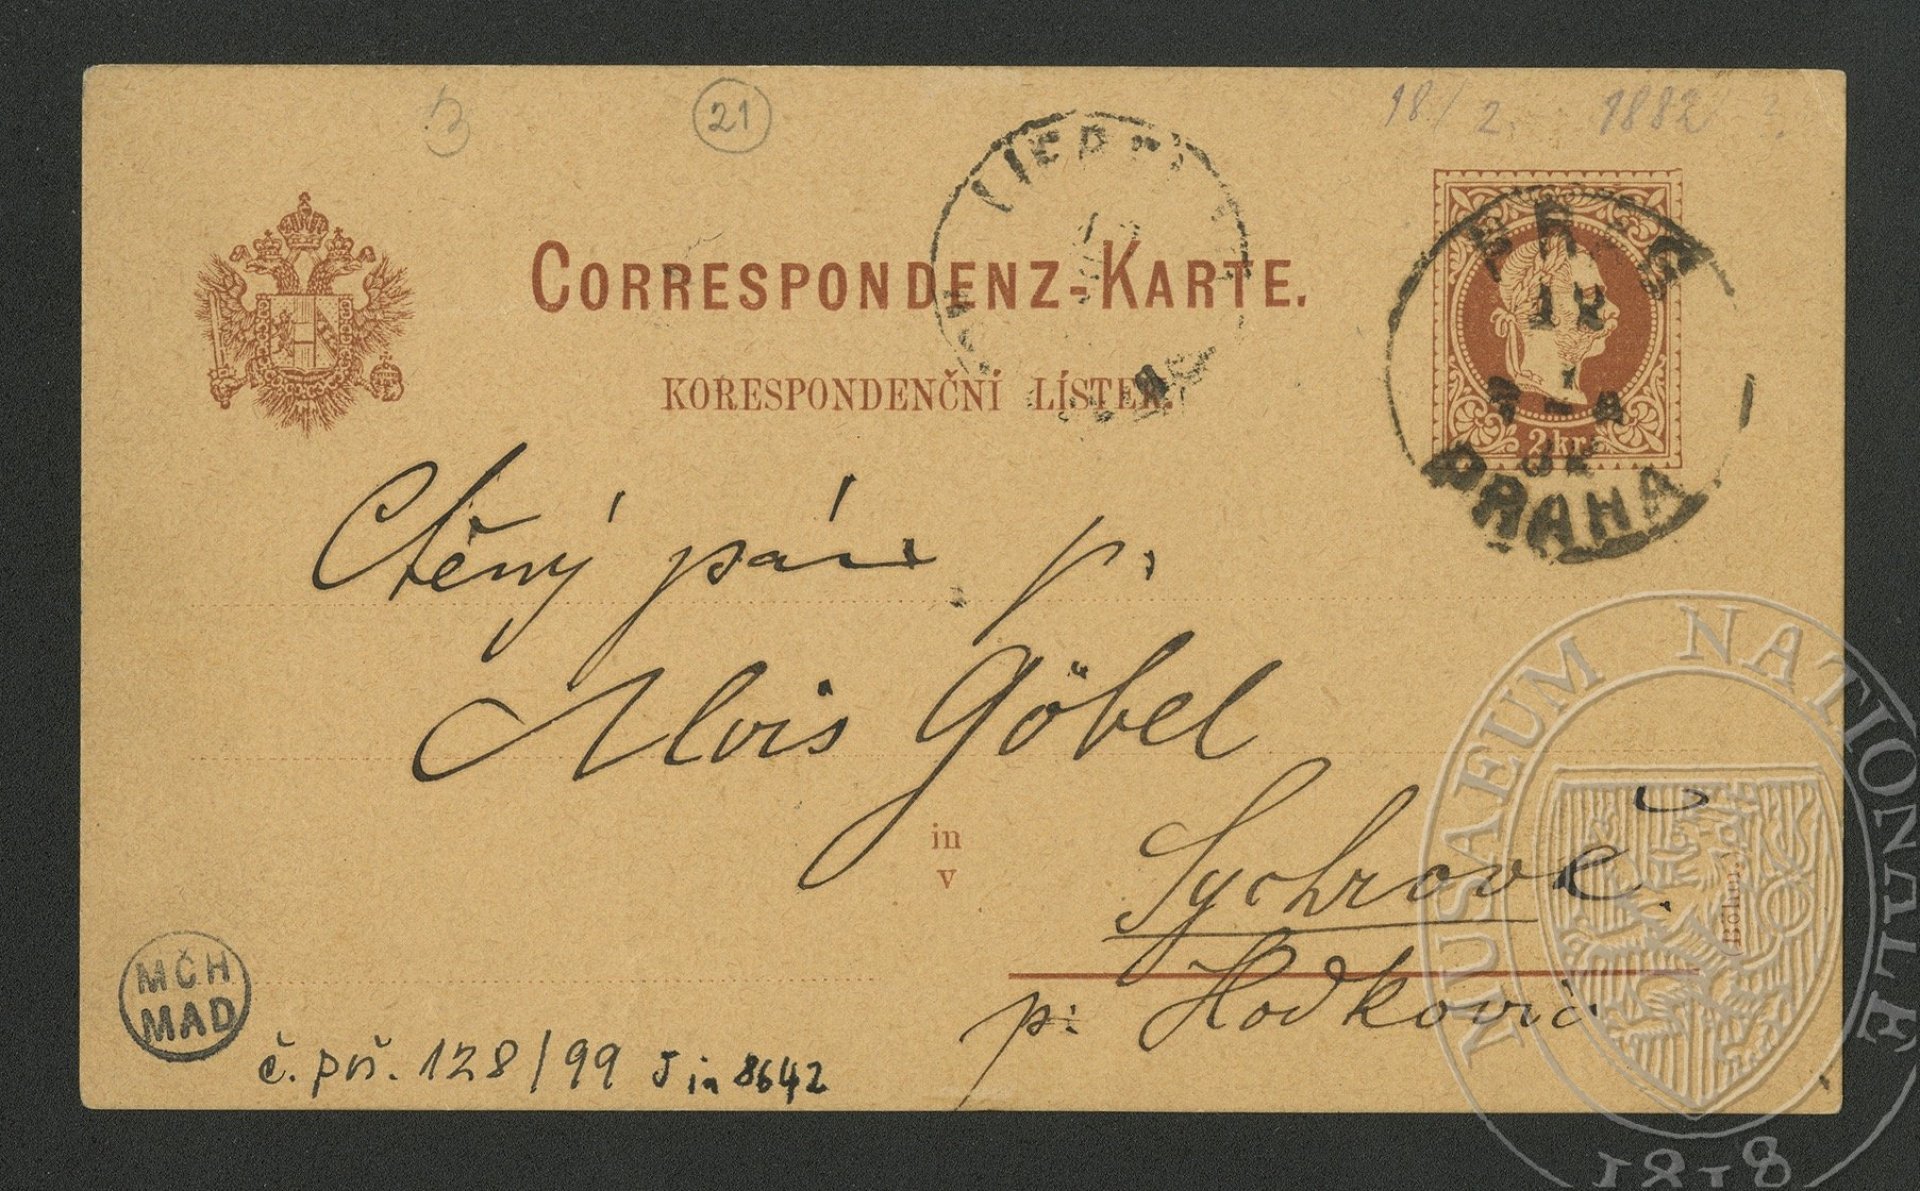 21
18/2 1882
CORRESPONDENZ-KARTE.
KORESPONDENČNÍ LÍSTEK.
PRAG
12
82
PRAHA
2 kr.
Ctěný pán p.
Alois Göbel
in
v
Sychrově.
p: Hodkovic
(Böhm.)
MČH
MAD
č. poř. 128/99 J in 8642
MUSAEUM NATIONALE
1818